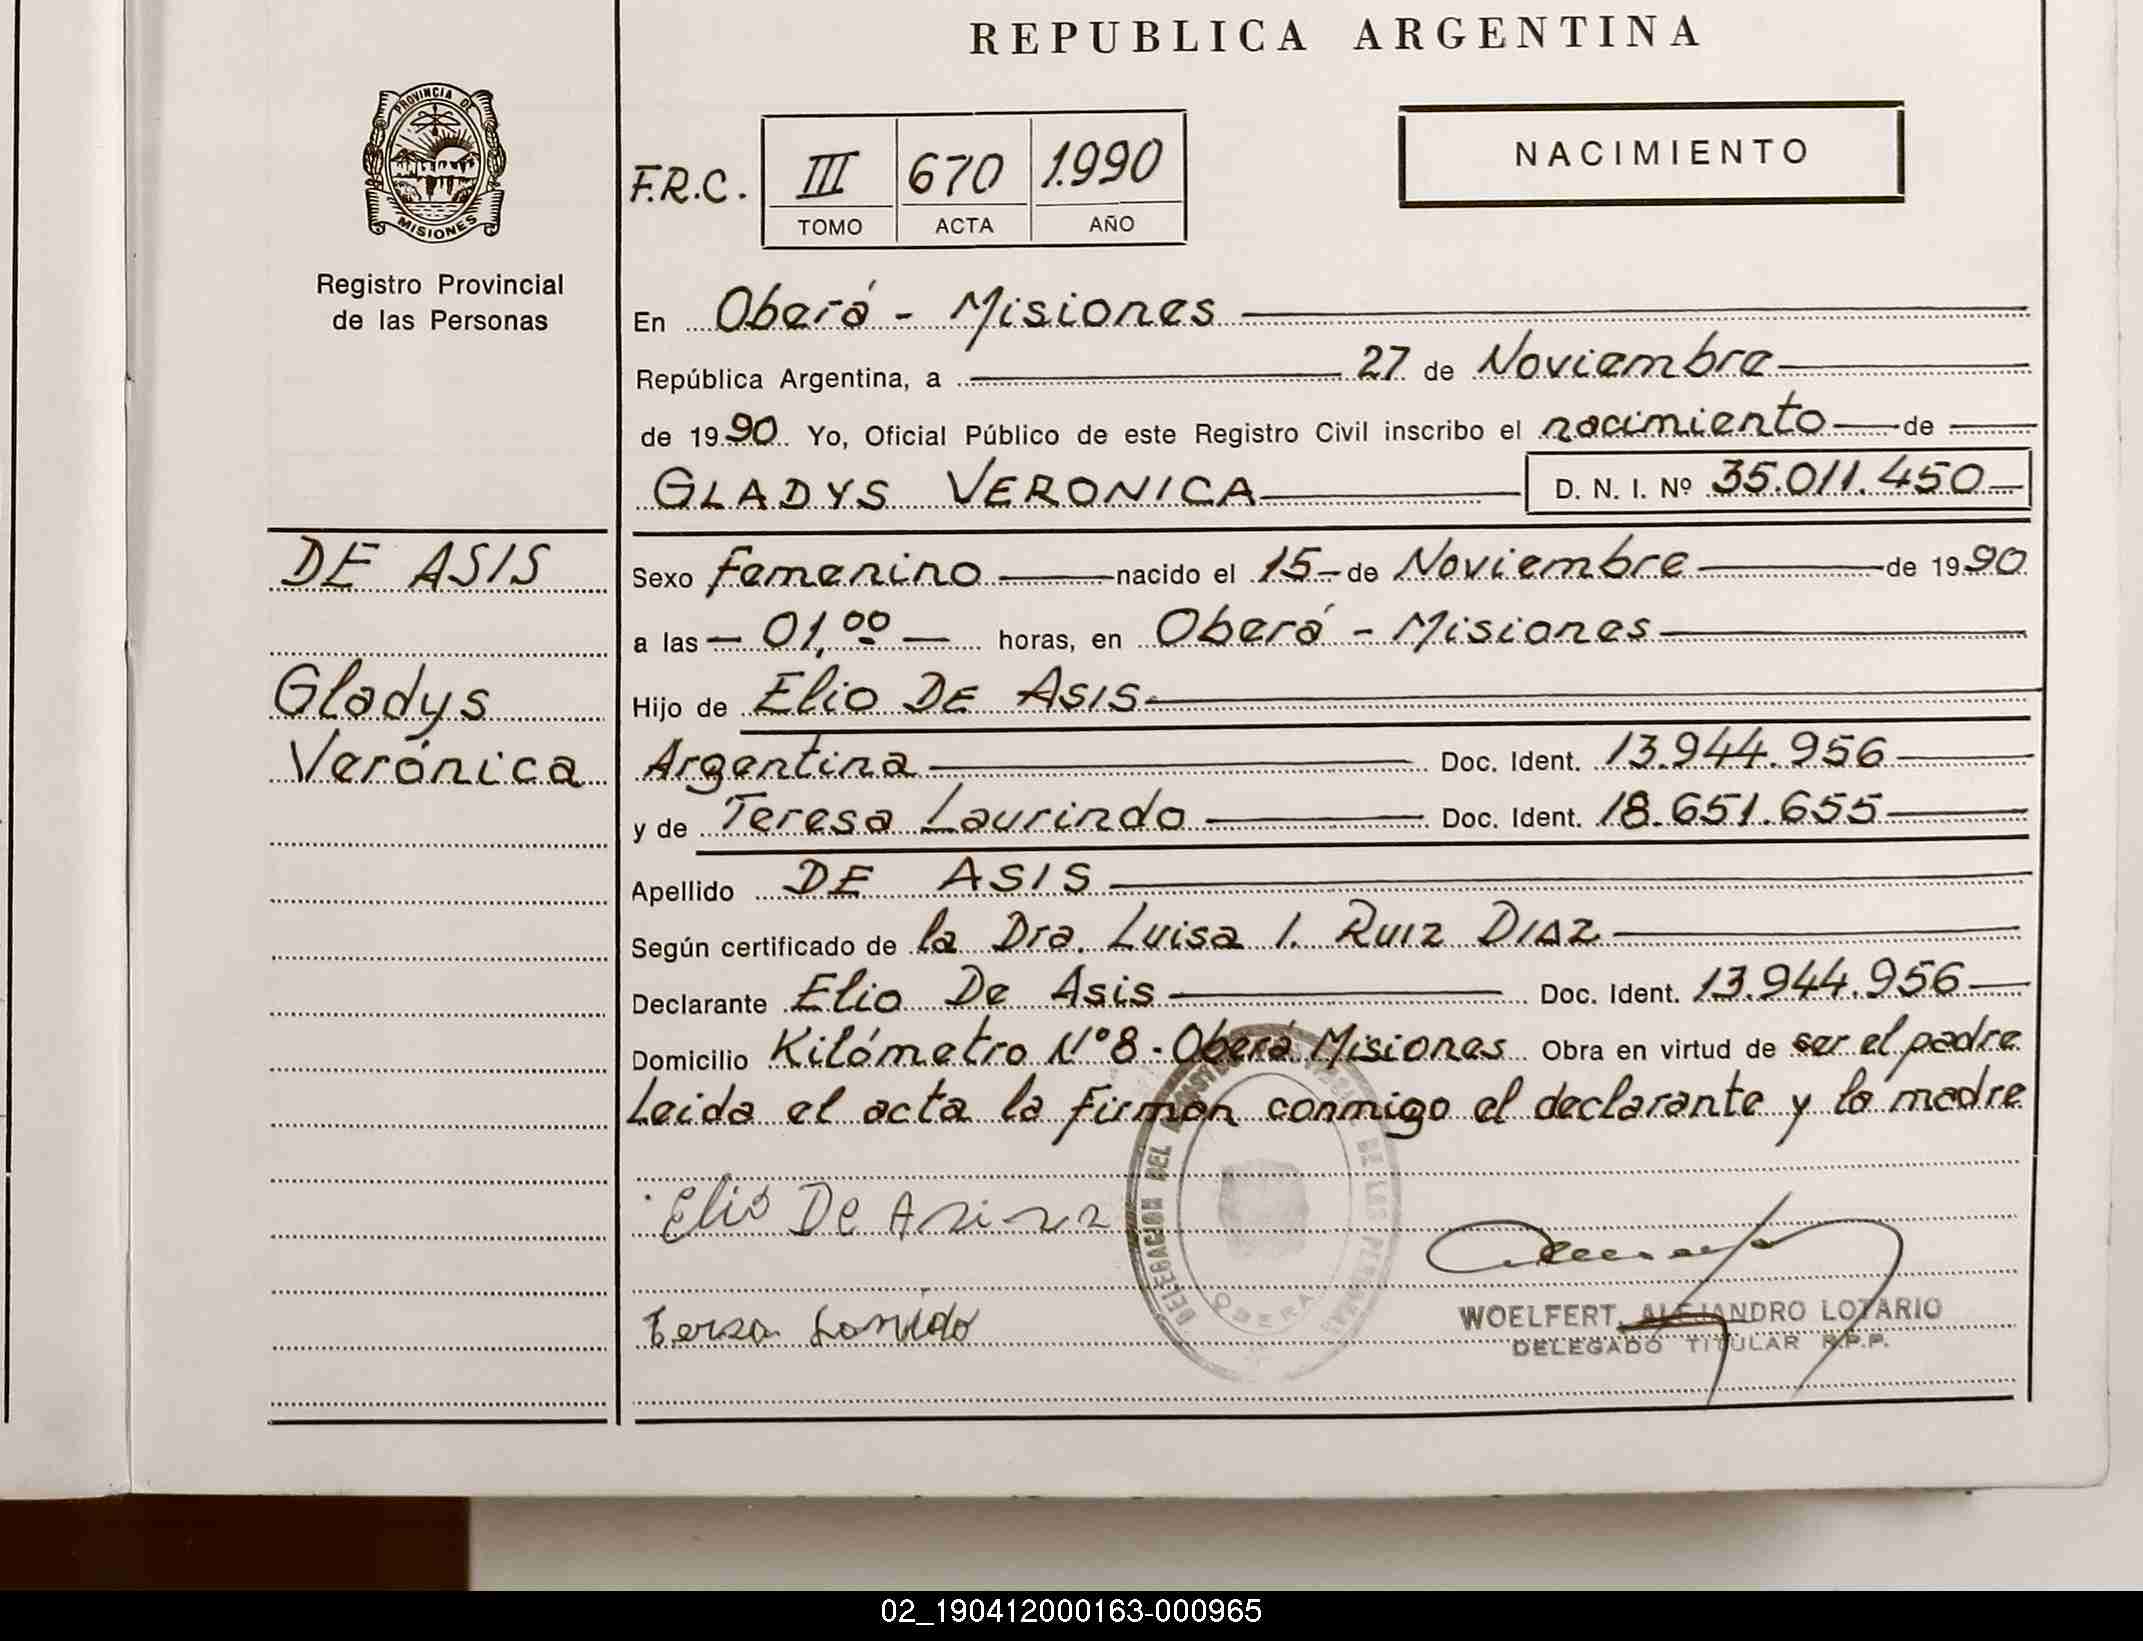 REPUBLICA ARGENTINA
PROVINCIA DE
MISIONES
Registro Provincial
de las Personas
F.R.C. III 670 1.990
TOMO ACTA AÑO
NACIMIENTO
En Oberá - Misiones
República Argentina, a 27 de Noviembre
de 1990 Yo, Oficial Público de este Registro Civil inscribo el nacimiento de
GLADYS VERONICA D. N. I. Nº 35.011.450
DE ASIS
Gladys
Verónica
Sexo femenino nacido el 15 de Noviembre de 1990
a las 01,00 horas, en Oberá - Misiones
Hijo de Elio DE ASIS
Argentina Doc. Ident. 13.944.956
y de Teresa Laurindo Doc. Ident. 18.651.655
Apellido DE ASIS
Según certificado de la Dra. Luisa I. RUIZ DIAZ
Declarante Elio De Asis Doc. Ident. 13.944.956
Domicilio Kilómetro Nº8 - Oberá Misiones Obra en virtud de ser el padre
Leida el acta la firman conmigo el declarante y la madre
Elio De
DELEGACION DEL DE LAS
OBERA
WOELFERT, ALEJANDRO LOTARIO
DELEGADO TITULAR R.P.P.
02_190412000163-000965